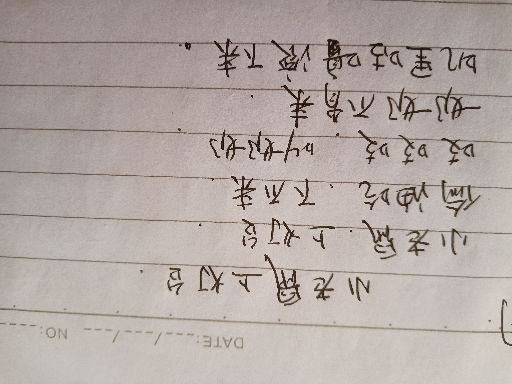 DATE: ---/---/--- NO:
小老鼠上灯台
小老鼠.上灯台
偷油吃.下不来
吱吱吱.叫奶奶
奶奶不肯来
叽里咕噜滚下来.